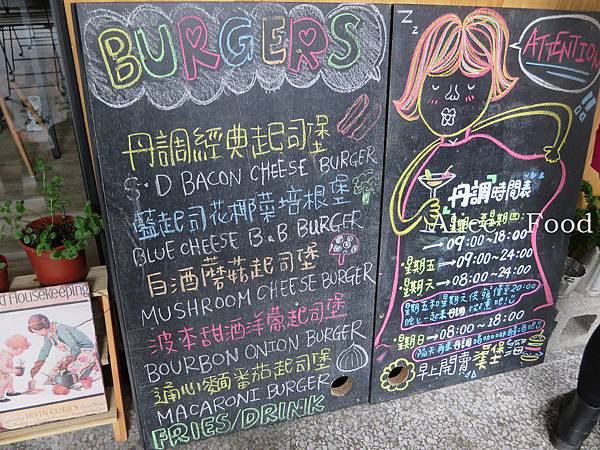 BURGERS
丹調經典起司堡
S·D BACON CHEESE BURGER
藍起司花椰菜培根堡
BLUE CHEESE B&B BURGER
白酒蘑菇起司堡
MUSHROOM CHEESE BURGER
波本甜酒洋蔥起司堡
BOURBON ONION BURGER
通心麵番茄起司堡
MACARONI BURGER
FRIES/DRINK
Z z
ATTENTION
丹調時間表
星期一至星期四:
→09:00~18:00
星期五→09:00~24:00
星期六→08:00~24:00
星期五和星期六供餐僅至20:00
晚上一起來丹調微醺吧!
星期日→08:00~18:00
早上開賣漢堡
Food
Housekeeping
IRVIN COBB'S